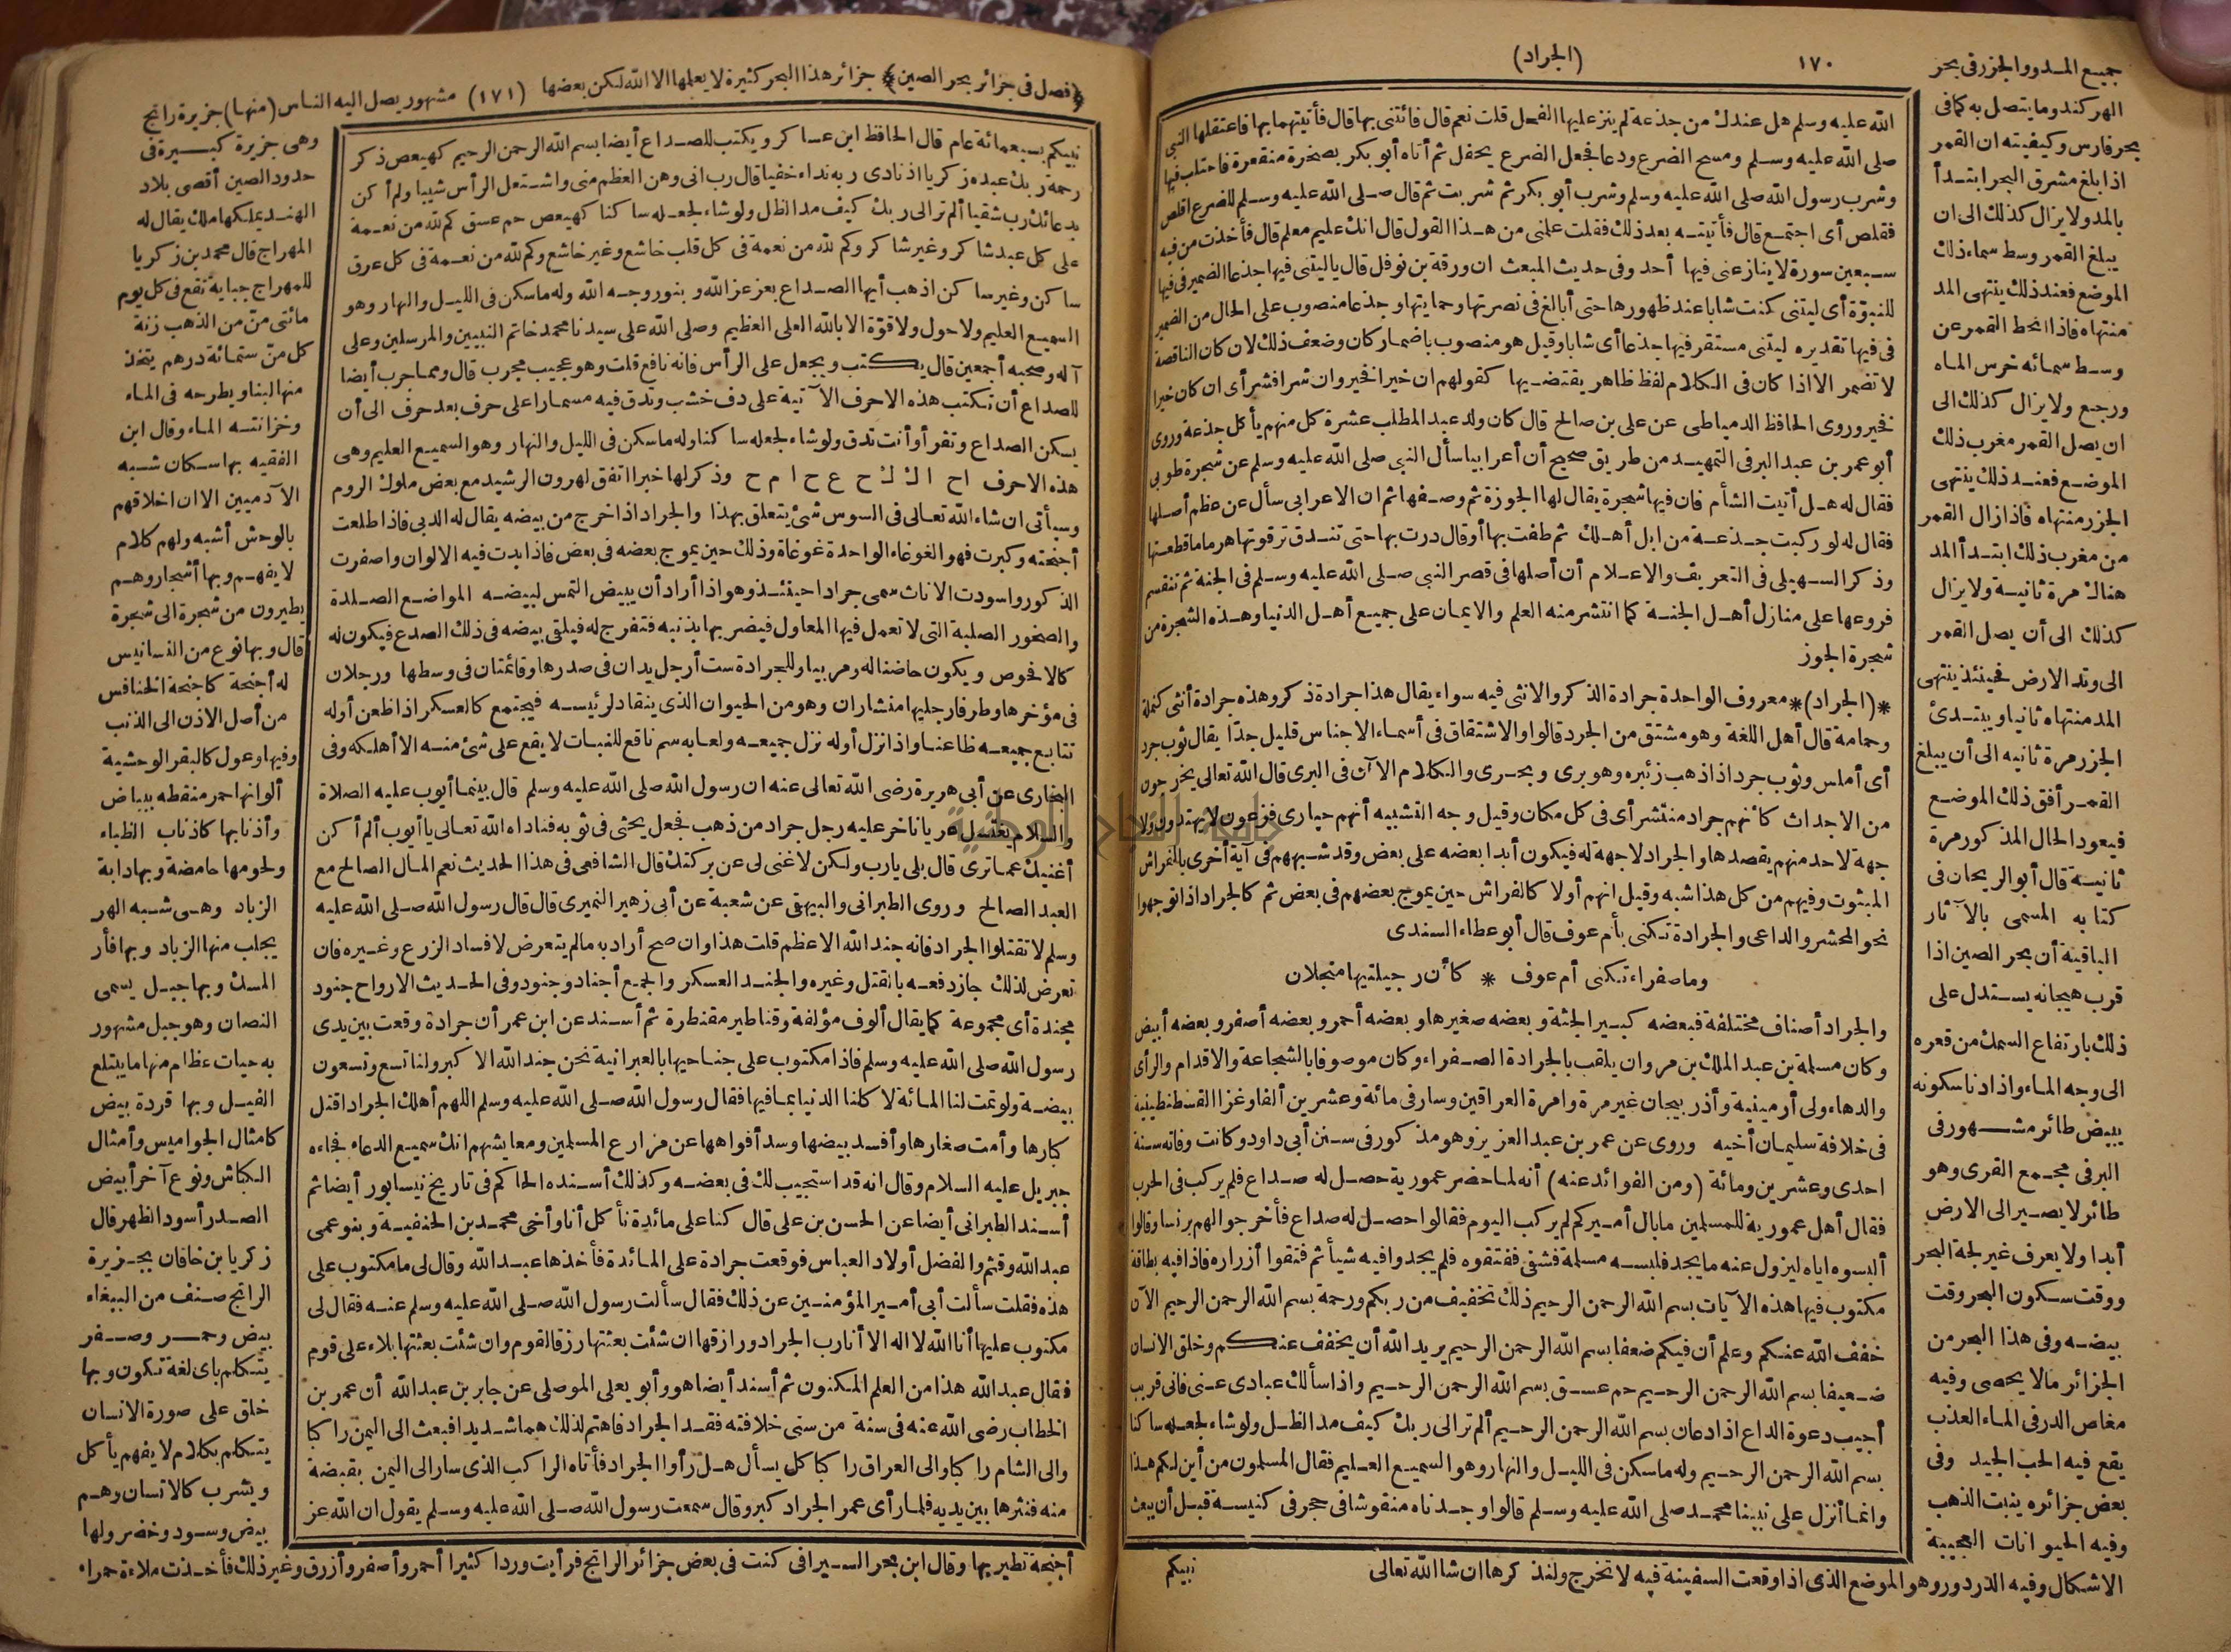 (الجراد) ١٧٠
الله عليه وسلم هل عندك من جذعة لم ينز عليها الفحل قلت نعم قال فائتني بها قال فأتيتهما بها فاعتقلها النبي
صلى الله عليه وسلم ومسح الضرع ودعا فجعل الضرع يحفل ثم أتاه أبو بكر بصخرة منقعرة فاحتلب فيها
وشرب رسول الله صلى الله عليه وسلم وشرب أبو بكر ثم شربت ثم قال صلى الله عليه وسلم للضرع اقلص
فقلص أى اجتمع قال فأتيته بعد ذلك فقلت علمنى من هذا القول قال انك عليم معلم قال فأخذت من فيه
سبعين سورة لا ينازعنى فيها أحد وفى حديث المبعث ان ورقة بن نوفل قال يا ليتنى فيها جذعا الضمير فى فيها
للنبوّة أى ليتنى كنت شابا عند ظهورها حتى أبالغ فى نصرتها وحمايتها وجذعا منصوب على الحال من الضمير
فى فيها تقديره ليتنى مستقر فيها جذعا أى شابا وقيل هو منصوب باضمار كان وضعف ذلك لان كان الناقصة
لا تضمر الا اذا كان فى الكلام لفظ ظاهر يقتضيها كقولهم ان خيرا فخير وان شرا فشر أى ان كان خيرا
فخير وروى الحافظ الدمياطى عن على بن صالح قال كان ولد عبد المطلب عشرة كل منهم يأكل جذعة وروى
أبو عمر بن عبد البر فى التمهيد من طريق صحيح أن أعرابيا سأل النبى صلى الله عليه وسلم عن شجرة طوبى
فقال له هل أتيت الشأم فان فيها شجرة يقال لها الجوزة ثم وصفها ثم ان الاعرابى سأل عن عظم أصلها
فقال له لو ركبت جذعة من ابل أهلك ثم طفت بها أو قال درت بها حتى تندق ترقوتها هرما ما قطعتها
وذكر السهيلى فى التعريف والاعلام أن أصلها فى قصر النبى صلى الله عليه وسلم فى الجنة ثم تنقسم
فروعها على منازل أهل الجنة كما انتشر منه العلم والايمان على جميع أهل الدنيا وهذه الشجرة من
شجرة الجوز
*(الجراد)* معروف الواحدة جرادة الذكر والانثى فيه سواء يقال هذا جرادة ذكر وهذه جرادة أنثى كنملة
وحمامة قال أهل اللغة وهو مشتق من الجرد قالوا والاشتقاق فى أسماء الاجناس قليل جدّا يقال ثوب جرد
أى أملس وثوب جرد اذا ذهب زئبره وهو برى وبحرى والكلام الآن فى البرى قال الله تعالى يخرجون
من الاجداث كأنهم جراد منتشر أى فى كل مكان وقيل وجه التشبيه أنهم حيارى فزعون لا يهتدون ولا
جهة لاحد منهم يقصدها والجراد لا جهة له فيكون أبدا بعضه على بعض وقد شبههم فى آية أخرى بالفراش
المبثوث وفيهم من كل هذا شبه وقيل انهم أولا كالفراش حين يموج بعضهم فى بعض ثم كالجراد اذا توجهوا
نحو المحشر والداعى والجرادة تكنى بأم عوف قال أبو عطاء السندى
وما صفراء تكنى أم عوف * كأن رجيلتيها منجلان
والجراد أصناف مختلفة فبعضه كبير الجثة وبعضه صغيرها وبعضه أحمر وبعضه أصفر وبعضه أبيض
وكان مسلمة بن عبد الملك بن مروان يلقب بالجرادة الصفراء وكان موصوفا بالشجاعة والاقدام والرأى
والدهاء ولى أرمينية وأذربيجان غير مرة وامرة العراقين وسار فى مائة وعشرين ألفا وغزا القسطنطينية
فى خلافة سليمان أخيه وروى عن عمر بن عبد العزيز وهو مذكور فى سنن أبى داود وكانت وفاته سنة
احدى وعشرين ومائة (ومن الفوائد عنه) أنه لما حضر عمورية حصل له صداع فلم يركب فى الحرب
فقال أهل عمورية للمسلمين ما بال أميركم لم يركب اليوم فقالوا حصل له صداع فأخرجوا لهم برنسا وقالوا
ألبسوه اياه ليزول عنه ما يجد فلبسه مسلمة فشفى ففتقوه فلم يجدوا فيه شيأ ثم فتقوا أزراره فاذا فيه بطاقة
مكتوب فيها هذه الآيات بسم الله الرحمن الرحيم ذلك تخفيف من ربكم ورحمة بسم الله الرحمن الرحيم الآن
خفف الله عنكم وعلم أن فيكم ضعفا بسم الله الرحمن الرحيم يريد الله أن يخفف عنكم وخلق الانسان
ضعيفا بسم الله الرحمن الرحيم حم عسق بسم الله الرحمن الرحيم واذا سألك عبادى عنى فانى قريب
أجيب دعوة الداع اذا دعان بسم الله الرحمن الرحيم ألم تر الى ربك كيف مد الظل ولو شاء لجعله ساكنا
بسم الله الرحمن الرحيم وله ما سكن فى الليل والنهار وهو السميع العليم فقال المسلمون من أين لكم هذا
وانما أنزل على نبينا محمد صلى الله عليه وسلم قالوا وجدناه منقوشا فى حجر فى كنيسة قبل أن يبعث
نبيكم
جميع المد والجزر فى بحر
الهركند وما يتصل به كما فى
بحر فارس وكيفيته ان القمر
اذا بلغ مشرق البحر ابتدأ
بالمد ولا يزال كذلك الى ان
يبلغ القمر وسط سماء ذلك
الموضع فعند ذلك ينتهى المد
منتهاه فاذا انحط القمر عن
وسط سمائه خرس الماء
ورجع ولا يزال كذلك الى
ان يصل القمر مغرب ذلك
الموضع فعند ذلك ينتهى
الجزر منتهاه فاذا زال القمر
من مغرب ذلك ابتدأ المد
هناك مرة ثانية ولا يزال
كذلك الى أن يصل القمر
الى وتد الارض فحينئذ ينتهى
المد منتهاه ثانيا ويبتدئ
الجزر مرة ثانية الى أن يبلغ
القمر أفق ذلك الموضع
فيعود الحال المذكور مرة
ثانية قال أبو الريحان فى
كتابه المسمى بالآثار
الباقية أن بحر الصين اذا
قرب هيجانه يستدل على
ذلك بارتفاع السمك من قعره
الى وجه الماء واذا دنا سكونه
يبيض طائر مشهور فى
البر فى مجمع القرى وهو
طائر لا يصير الى الارض
أبدا ولا يعرف غير لجة البحر
ووقت سكون البحر وقت
بيضه وفى هذا البحر من
الجزائر ما لا يحصى وفيه
مغاص الدر فى الماء العذب
يقع فيه الحب الجيد وفى
بعض جزائره ينبت الذهب
وفيه الحيوانات العجيبة
الاشكال وفيه الدردور وهو الموضع الذى اذا وقعت السفينة فيه لا تخرج ولنذكرها ان شا الله تعالى
﴿فصل فى جزائر بحر الصين﴾ جزائر هذا البحر كثيرة لا يعلمها الا الله لكن بعضها (١٧١) مشهور يصل اليه الناس (منها) جزيرة رانج
نبيكم بسبعمائة عام قال الحافظ ابن عساكر ويكتب للصداع أيضا بسم الله الرحمن الرحيم كهيعص ذكر
رحمة ربك عبده زكريا اذ نادى ربه نداء خفيا قال رب انى وهن العظم منى واشتعل الرأس شيبا ولم أكن
بدعائك رب شقيا ألم تر الى ربك كيف مد الظل ولو شاء لجعله ساكنا كهيعص حم عسق كم لله من نعمة
على كل عبد شاكر وغير شاكر وكم لله من نعمة فى كل قلب خاشع وغير خاشع وكم لله من نعمة فى كل عرق
ساكن وغير ساكن اذهب أيها الصداع بعز عز الله وبنور وجه الله وله ما سكن فى الليل والنهار وهو
السميع العليم ولا حول ولا قوّة الا بالله العلى العظيم وصلى الله على سيدنا محمد خاتم النبيين والمرسلين وعلى
آله وصحبه أجمعين قال يكتب ويجعل على الرأس فانه نافع قلت وهو عجيب مجرب قال ومما جرب أيضا
للصداع أن تكتب هذه الاحرف الآتية على دف خشب وتدق فيه مسمارا على حرف بعد حرف الى أن
يسكن الصداع وتقرأ وأنت تدق ولو شاء لجعله ساكنا وله ما سكن فى الليل والنهار وهو السميع العليم وهى
هذه الاحرف اح اك ك ح ع ح ا م ح وذكر لها خبرا اتفق لهرون الرشيد مع بعض ملوك الروم
وسيأتى ان شاء الله تعالى فى السوس شئ يتعلق بهذا والجراد اذا خرج من بيضه يقال له الدبى فاذا طلعت
أجنحته وكبرت فهو الغوغاء الواحدة غوغاة وذلك حين يموج بعضه فى بعض فاذا بدت فيه الالوان واصفرت
الذكور واسودت الاناث سمى جرادا حينئذ وهو اذا أراد أن يبيض التمس لبيضه المواضع الصلدة
والصخور الصلبة التى لا تعمل فيها المعاول فيضربها بذنبه فتفرج له فيلقى بيضه فى ذلك الصدع فيكون له
كالافحوص ويكون حاضنا له ومربيا وللجرادة ست أرجل يدان فى صدرها وقائمتان فى وسطها ورجلان
فى مؤخرها وطرفا رجليها منشاران وهو من الحيوان الذى ينقاد لرئيسه فيجتمع كالعسكر اذا ظعن أوله
تتابع جميعه ظاعنا واذا نزل أوله نزل جميعه ولعابه سم ناقع للنبات لا يقع على شئ منه الا أهلكه وفى
البخارى عن أبى هريرة رضى الله تعالى عنه ان رسول الله صلى الله عليه وسلم قال بينما أيوب عليه الصلاة
والسلام يغتسل عريانا خر عليه رجل جراد من ذهب فجعل يحثى فى ثوبه فناداه الله تعالى يا أيوب ألم أكن
أغنيك عما ترى قال بلى يا رب ولكن لا غنى لى عن بركتك قال الشافعى فى هذا الحديث نعم المال الصالح مع
العبد الصالح وروى الطبرانى والبيهقى عن شعبة عن أبى زهير النميرى قال قال رسول الله صلى الله عليه
وسلم لا تقتلوا الجراد فانه جند الله الاعظم قلت هذا وان صح أراد به ما لم يتعرض لافساد الزرع وغيره فان
تعرض لذلك جاز دفعه بالقتل وغيره والجند العسكر والجمع أجناد وجنود وفى الحديث الارواح جنود
مجندة أى مجموعة كما يقال ألوف مؤلفة وقناطير مقنطرة ثم أسند عن ابن عمر أن جرادة وقعت بين يدى
رسول الله صلى الله عليه وسلم فاذا مكتوب على جناحيها بالعبرانية نحن جند الله الاكبر ولنا تسع وتسعون
بيضة ولو تمت لنا المائة لاكلنا الدنيا بما فيها فقال رسول الله صلى الله عليه وسلم اللهم أهلك الجراد اقتل
كبارها وأمت صغارها وأفسد بيضها وسد أفواهها عن مزارع المسلمين ومعايشهم انك سميع الدعاء فجاءه
جبريل عليه السلام وقال انه قد استجيب لك فى بعضه وكذلك أسنده الحاكم فى تاريخ نيسابور أيضا ثم
أسند الطبرانى أيضا عن الحسن بن على قال كنا على مائدة نأكل أنا وأخى محمد بن الحنفيه وبنو عمى
عبد الله وقثم والفضل أولاد العباس فوقعت جرادة على المائدة فأخذها عبد الله وقال لى ما مكتوب على
هذه فقلت سألت أبى أمير المؤمنين عن ذلك فقال سألت رسول الله صلى الله عليه وسلم عنه فقال لى
مكتوب عليها أنا الله لا اله الا أنا رب الجراد ورازقها ان شئت بعثتها رزقا لقوم وان شئت بعثتها بلاء على قوم
فقال عبد الله هذا من العلم المكنون ثم أسند أيضا هو وأبو يعلى الموصلى عن جابر بن عبد الله أن عمر بن
الخطاب رضى الله عنه فى سنة من سنى خلافته فقد الجراد فاهتم لذلك هما شديدا فبعث الى اليمن راكبا
والى الشام راكبا والى العراق راكبا كل يسأل هل رأوا الجراد فأتاه الراكب الذى سار الى اليمن بقبضة
منه فنثرها بين يديه فلما رأى عمر الجراد كبر وقال سمعت رسول الله صلى الله عليه وسلم يقول ان الله عز
وهى جزيرة كبيرة فى
حدود الصين أقصى بلاد
الهند يملكها ملك يقال له
المهراج قال محمد بن زكريا
للمهراج جباية تقع فى كل يوم
مائتى منّ من الذهب زنة
كل منّ ستمائة درهم يتخذ
منها لبنا ويطرحه فى الماء
وخزانته الماء وقال ابن
الفقيه بها سكان شبه
الآدميين الا ان اخلاقهم
بالوحش أشبه ولهم كلام
لا يفهم وبها أشجار وهم
يطيرون من شجرة الى شجرة
قال وبها نوع من السنانيس
له أجنحة كاجنحة الخنافس
من أصل الاذن الى الذنب
وفيها وعول كالبقر الوحشية
ألوانها حمر منقطه ببياض
وأذنابها كاذناب الظباء
ولحومها حامضة وبها دابة
الزباد وهى شبه الهر
يجلب منها الزباد وبها فأر
المسك وبها جبل يسمى
النصان وهو جبل مشهور
به حيات عظام منها ما يبتلع
الفيل وبها قردة بيض
كامثال الجواميس وأمثال
الكباش ونوع آخر أبيض
الصدر أسود الظهر قال
زكريا بن خاقان بجزيرة
الرانج صنف من الببغاء
بيض وحمر وصفر
يتكلم باى لغة تكون وبها
خلق على صورة الانسان
يتكلم بكلام لا يفهم يأكل
ويشرب كالانسان وهم
بيض وسود وخضر ولها
أجنحة تطير بها وقال ابن بحر السيرافى كنت فى بعض جزائر الرانج فرأيت وردا كثيرا أحمر وأصفر وأزرق وغير ذلك فأخذت ملاءة حمراء